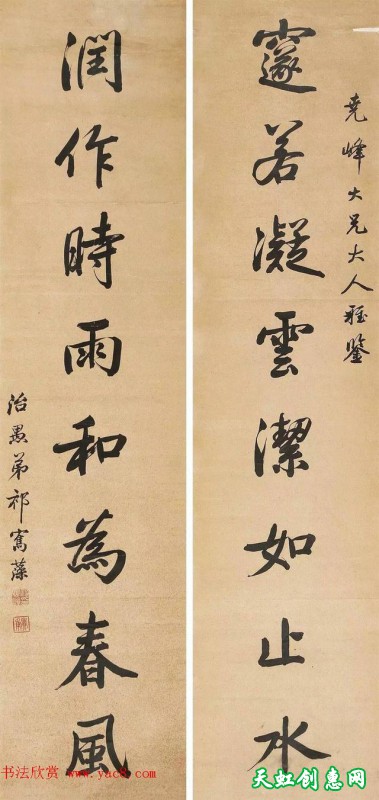 堯峰兄大人雅鑒
邃若凝雲潔如止水
潤作時雨和為春風
治愚弟祁寯藻
书法欣赏 www.yac8.com
天虹创惠网